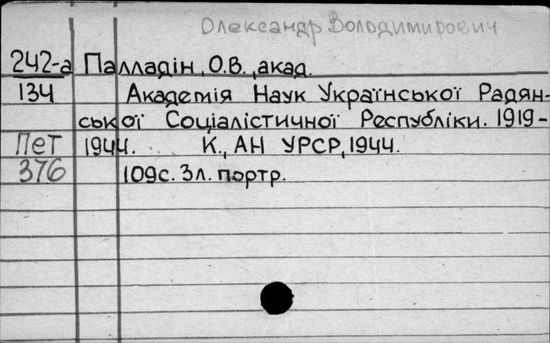 Олександр Володимирович
242-а Палладін, О.В., акад.
134 Академія Наук Української Радян-
ської Соціалістичної Республіки. 1919-
Пет 1944. К., АН УРСР, 1944.
376 109с. 3л. портр.